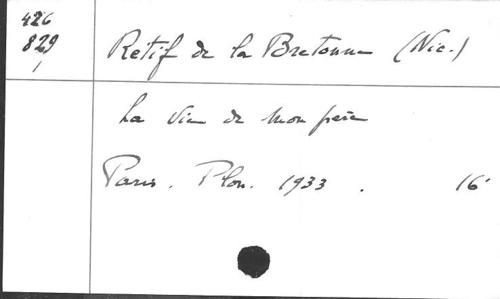 426
829
1
Retif de la Bretonne (Nic.)
La Vie de mon père
Paris. Plon. 1933. 16°